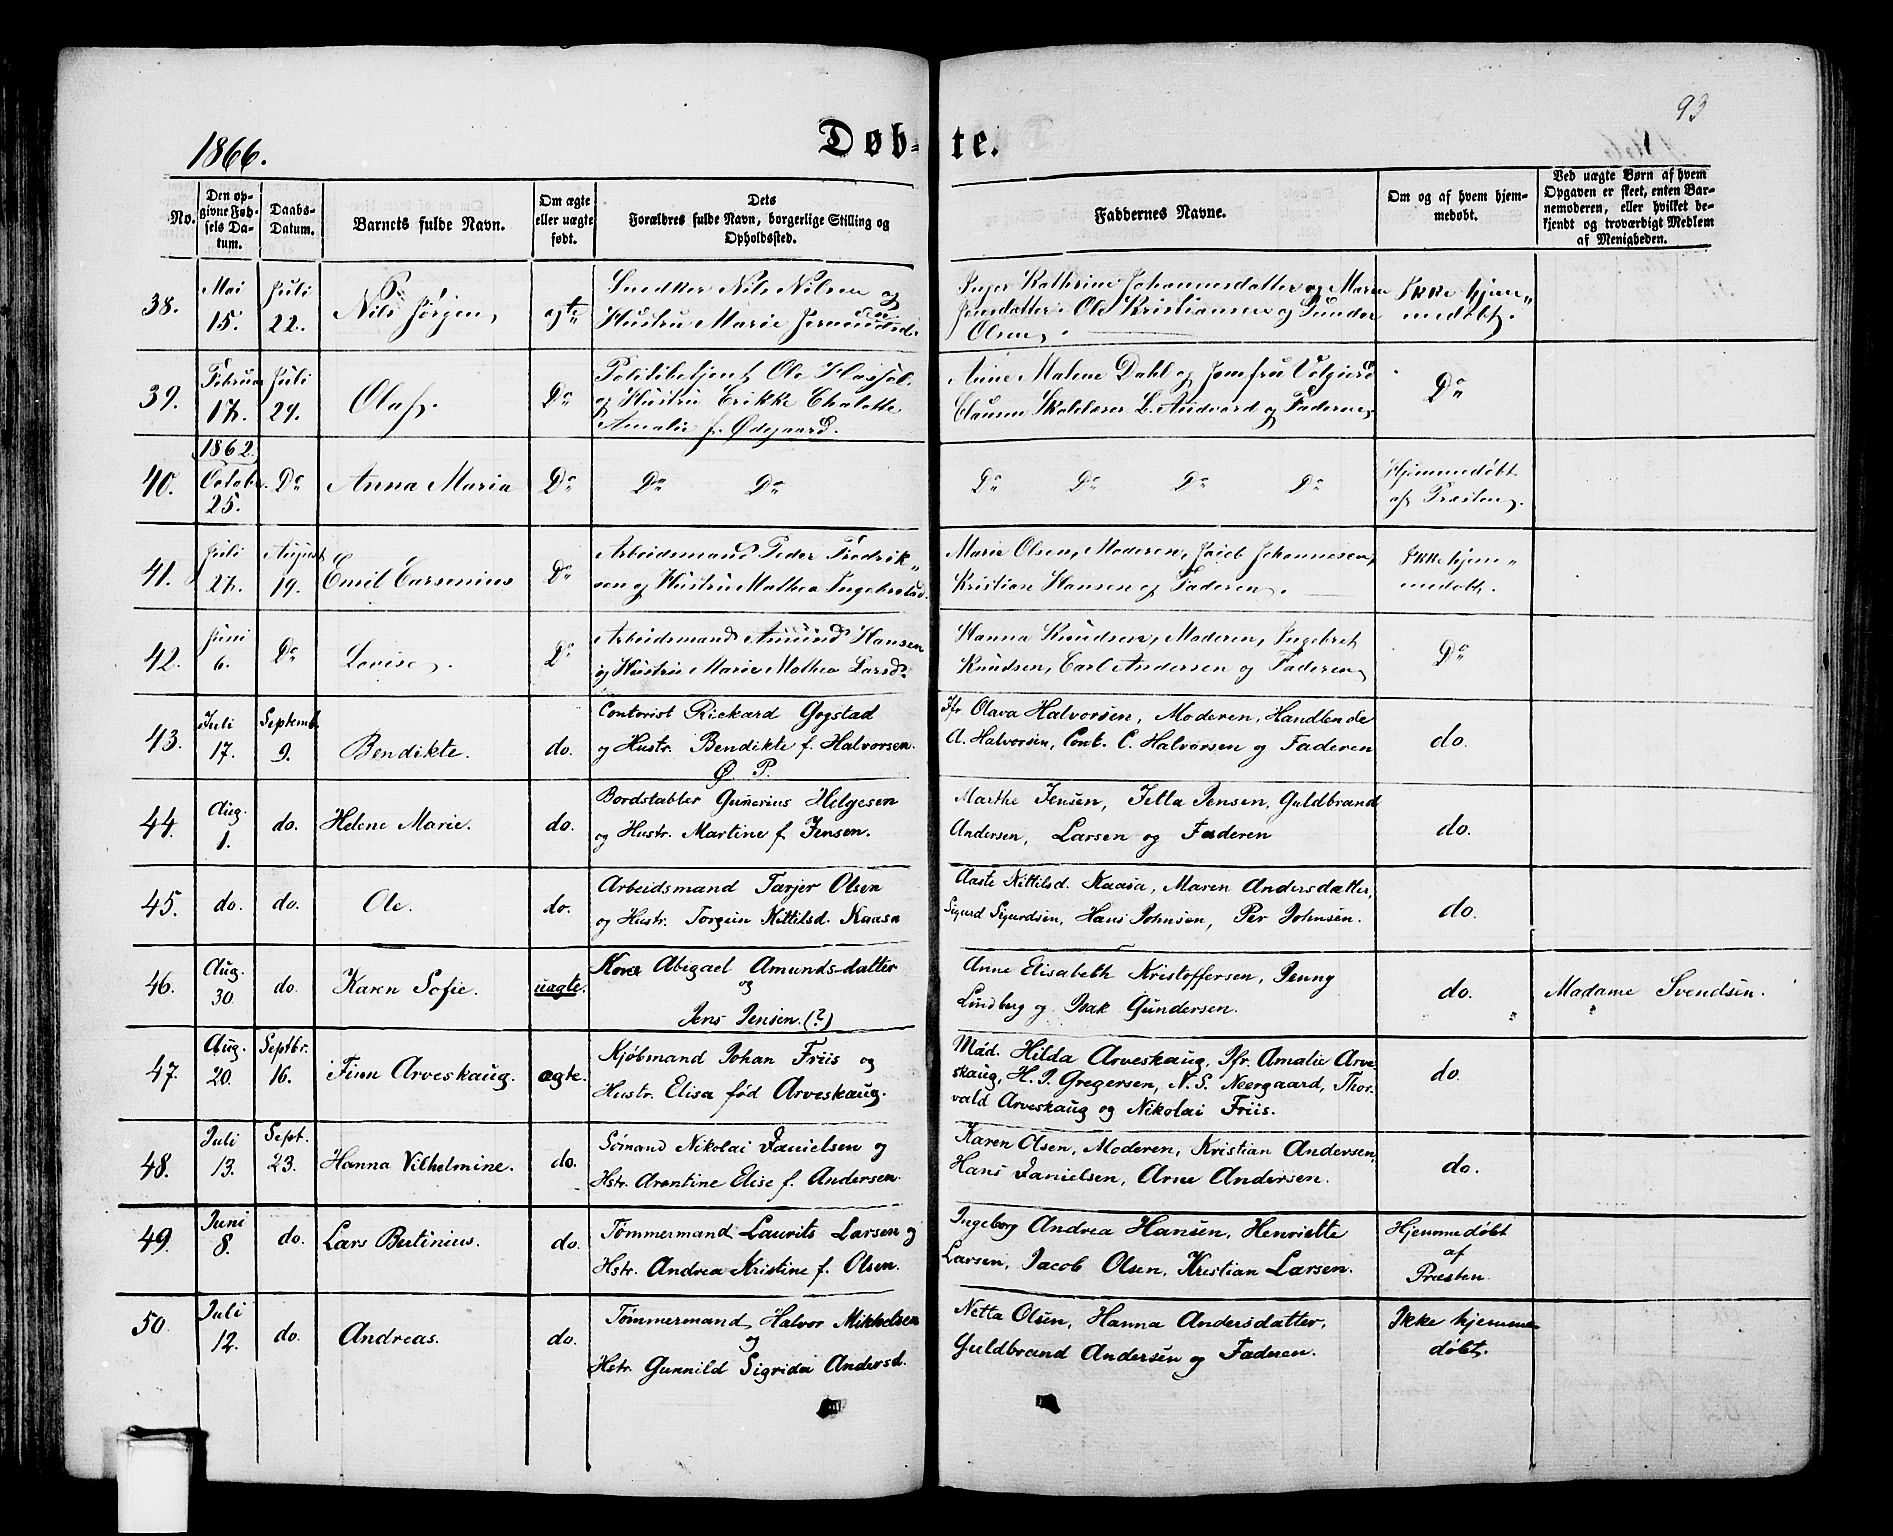 93
1866.
Døb- te.
No.
Den op-
givne Fød-
sels Da-
tum.
Daabs-
Datum.
Barnets fulde Navn.
Om ægte
eller uægte
født.
Dets
Forældres fulde Navn, borgerlige Stilling og
Opholdssted.
Faddernes Navne.
Om og af hvem hjem-
medøbt.
Ved uægte Børn af hvem
Opgaven er skeet, enten Bar-
nemoderen, eller hvilket be-
kjendt og troværdigt Medlem
af Menigheden.
38.
Mai
15.
Juli
22.
Nils Jørgen,
Snedker Nils Nilsen og
Hustru Marie
Inger Kathrine Johannesdatter og Maren
Jensdatter. Ole Kristiansen og Gunder
Olsen.
Ikke hjem-
medøbt.
39.
Februar
17.
Juli
29.
Olaf.
Do
Politibetjent Ole
og Hustru Erikke Chalotte
Amalie f. Ødegaard.
Anne Malene Dahl og Jomfru
Clausen Skolelærer L. Andvord og Faderen,
Do
40.
1862
Octobr.
25.
Do
Anna Maria
Do
Do Do
Do Do Do Do
Hjemmedøbt
af Præsten.
41.
Juli
27.
August
19.
Emil Earsenius
Do
Arbeidsmand Peder Fredrik-
sen og Hustru Mathea
Marie Olsen, Moderen, Jacob Johannesen,
Kristian Hansen og Faderen.
Ikke hjem-
medøbt.
42.
Juni
6.
Do
Lovise.
Do
Arbeidsmand Amund Hansen
og Hustru Marie Mathea Larsd.
Hanna Knudsen, Moderen, Ingebret
Knudsen, Carl Andersen og Faderen,
Do
43.
Juli
17.
Septemb.
9.
Bendikte.
do.
Contorist Rickard Gogstad
og Hustr. Bendikte f. Halvorsen.
Ø P.
Jfr. Olava Halvorsen, Moderen, Handlende
A. Halvorsen, Cont. C. Halvorsen og Faderen
do.
44.
Aug.
1.
do.
Helene Marie.
do.
Bordstabler Gunerius Helgesen
og Hustr. Martine f. Jensen.
Marthe Jensen, Jetta Jensen, Guldbrand
Andersen, Larsen og Faderen
do.
45.
do.
do.
Ole.
do.
Arbeidsmand Tarjer Olsen
og Hustr. Torgun Kittilsd. Kaasa
Aaste Kittilsd. Kaasa, Maren Andersdatter,
Sigurd Sigurdsen, Hans Johnsen, Per Johnsen.
do.
46.
Aug.
30.
do.
Karen Sofie.
uægte.
Abigael Amunds-datter
og
Jens Jensen. (?)
Anne Elisabeth Kristoffersen, Jenny
Lindberg og Isak Gundersen.
do.
Madame Svendsen.
47.
Aug.
20.
Septbr.
16.
Finn Arveskaug.
ægte.
Kjøbmand Johan Friis og
Hustr. Elisa fød Arveskaug.
Mad. Hilda Arveskaug, Jfr. Amalie Arve-
skaug, H. J. Gregersen, N. S. Neergaard, Thor-
vald Arveskaug og Nikolai Friis.
do.
48.
Juli
13.
Sept.
23.
Hanna Vilhelmine.
do.
Sømand Nikolai Danielsen og
Hstr. Arentine Elise f. Andersen.
Karen Olsen, Moderen, Kristian Andersen,
Hans Danielsen, Arne Andersen.
do.
49.
Juni
8.
do.
Lars Bertinius.
do.
Tømmermand Laurits Larsen og
Hstr. Andrea Kristine f. Olsen.
Ingeborg Andrea Hansen, Henriette
Larsen, Jacob Olsen, Kristian Larsen.
Hjemmedøbt
af
Præsten.
50.
Juli
12.
do.
Andreas.
do.
Tømmermand Halvor Mikkelsen
og
Hstr. Gunnild Sigrida Andersd.
Netta Olsen, Hanna Andersdatter,
Guldbrand Andersen og Faderen.
Ikke hjemme-
døbt.